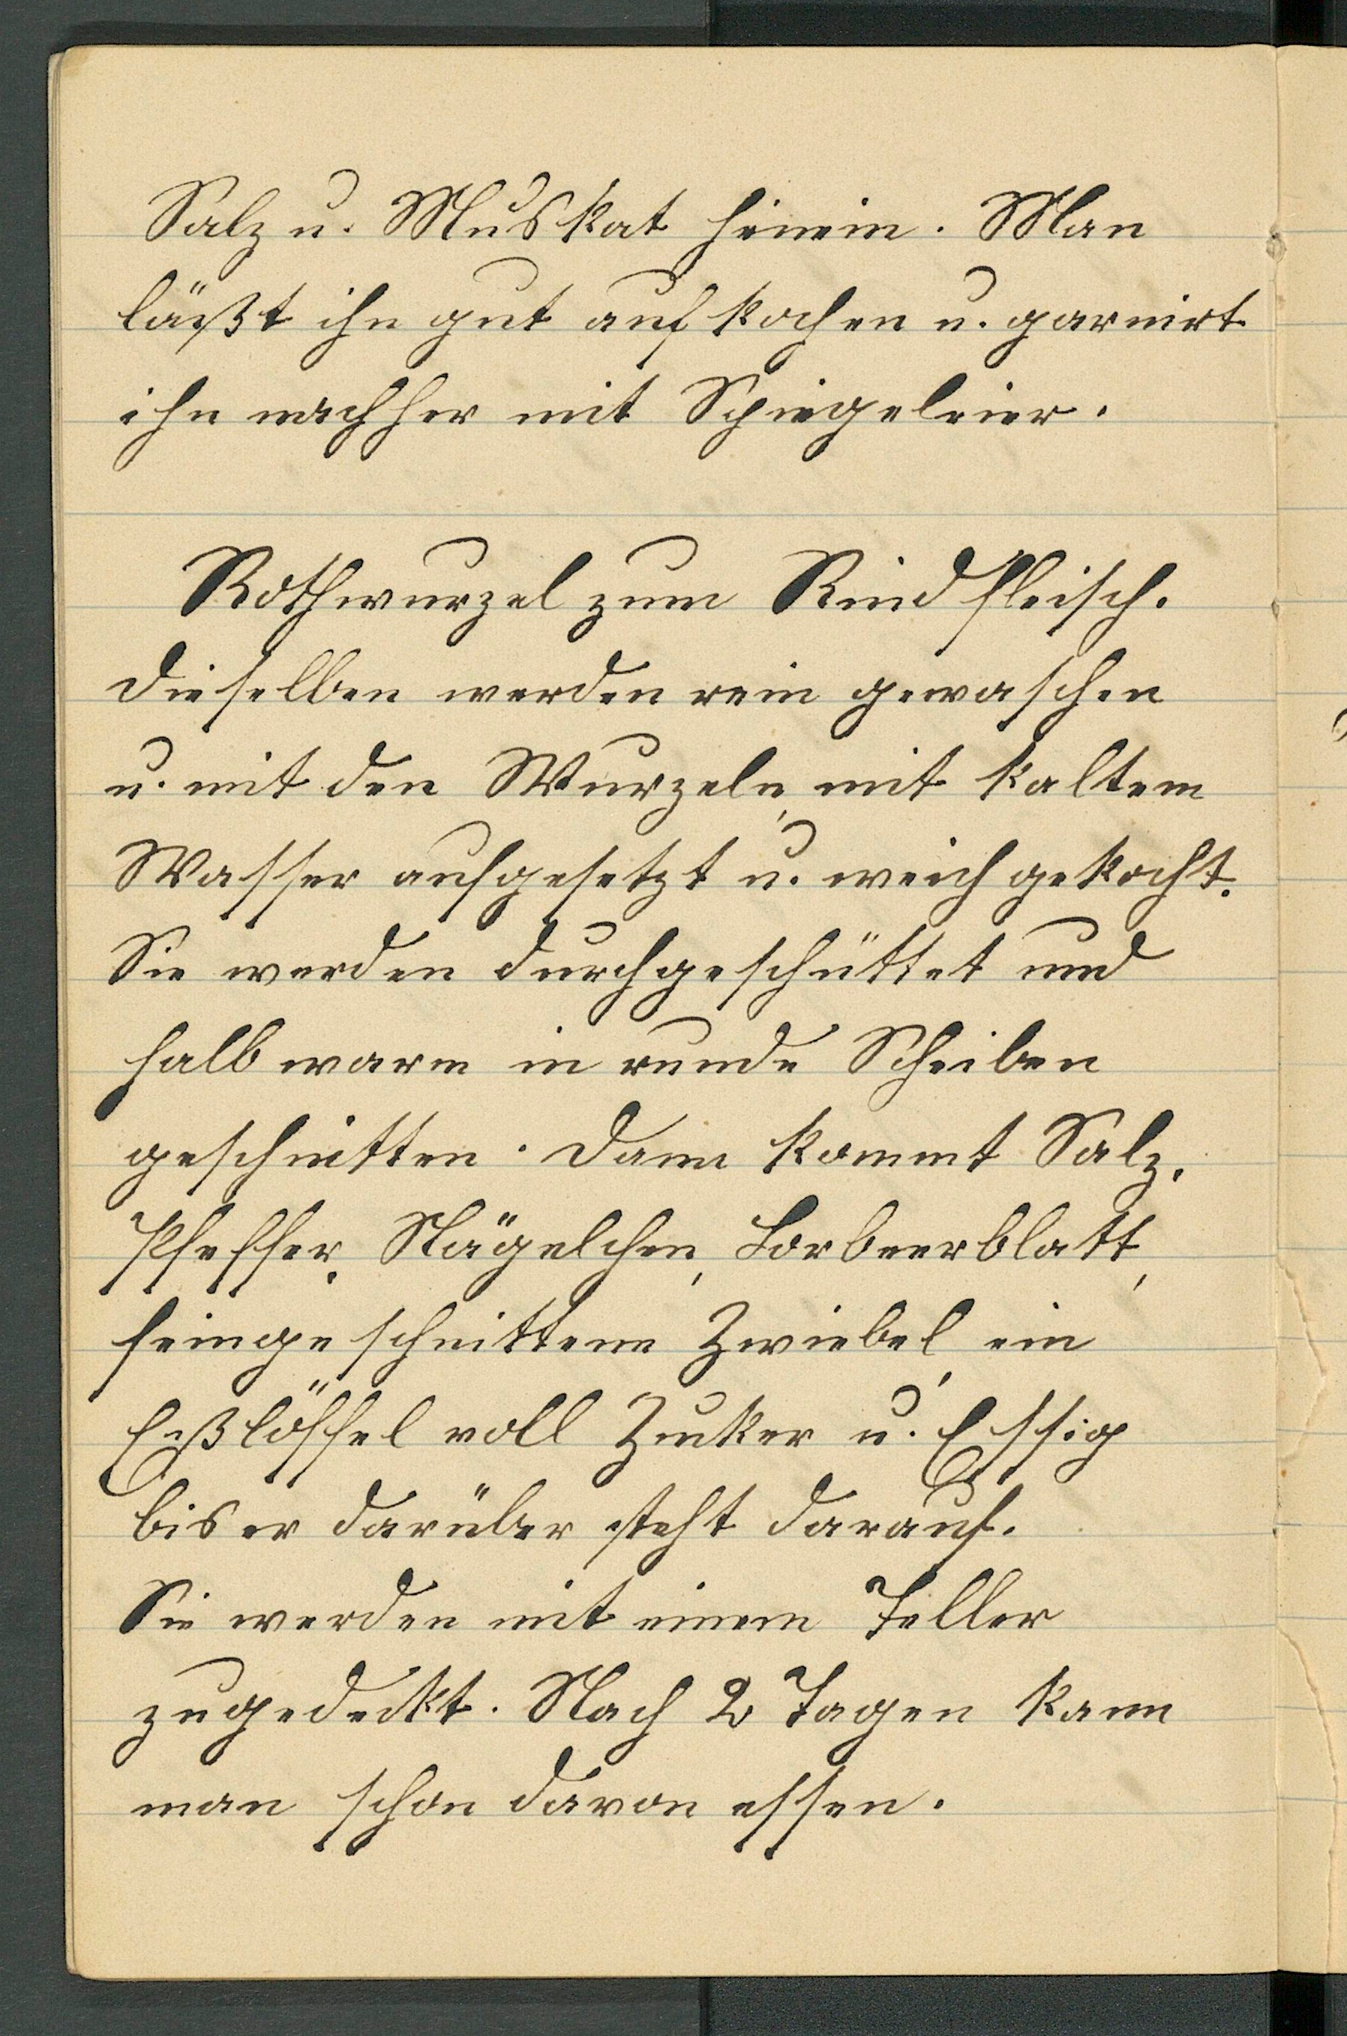 Salz u. Muskat hinein. Man
läßt ihn gut aufkochen u. garnirt
ihn nachher mit Spiegeleier.
Rothwurzel zum Rindfleisch.
Dieselben werden rein gewaschen
u. mit den Wurzeln, mit kaltem
Wasser aufgesetzt u. weich gekocht.
Sie werden durchgeschüttet und
halb warm in runde Scheiben
geschnitten. Dann kommt Salz,
Pfeffer, Nägelchen, Lorbeerblatt,
feingeschnittene Zwiebel, ein
Eßlöffel voll Zucker u. Essig
bis er darüber steht darauf.
Sie werden mit einem Teller
zugedeckt. Nach 2 Tagen kann
man schon davon essen.